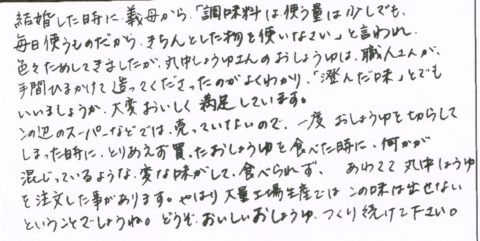 結婚した時に、義母から、「調味料は使う量は少しでも、
毎日使うものだから、きちんとした物を使いなさい」と言われ、
色々ためしてきましたが、丸中しょうゆさんのおしょうゆは、職人さんが、
手間ひまかけて造ってくださったのがよくわかり、「澄んだ味」とでも
いいましょうか、大変おいしく満足しています。
この辺のスーパーなどでは、売っていないので、一度おしょうゆを切らして
しまった時に、とりあえず買ったおしょうゆを食べた時に、何かが
混じっているような、変な味がして、食べられず、あわてて丸中しょうゆ
を注文した事があります。やはり大量工場生産ではこの味は出せない
ということでしょうね。どうぞ、おいしいおしょうゆ、つくり続けて下さい。